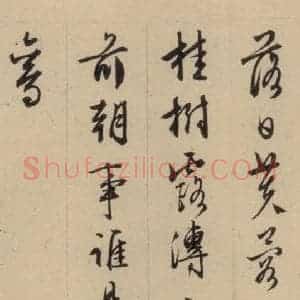 落日黄葛
桂樹露漙
前朝事誰
寫
Shufaziliao.com